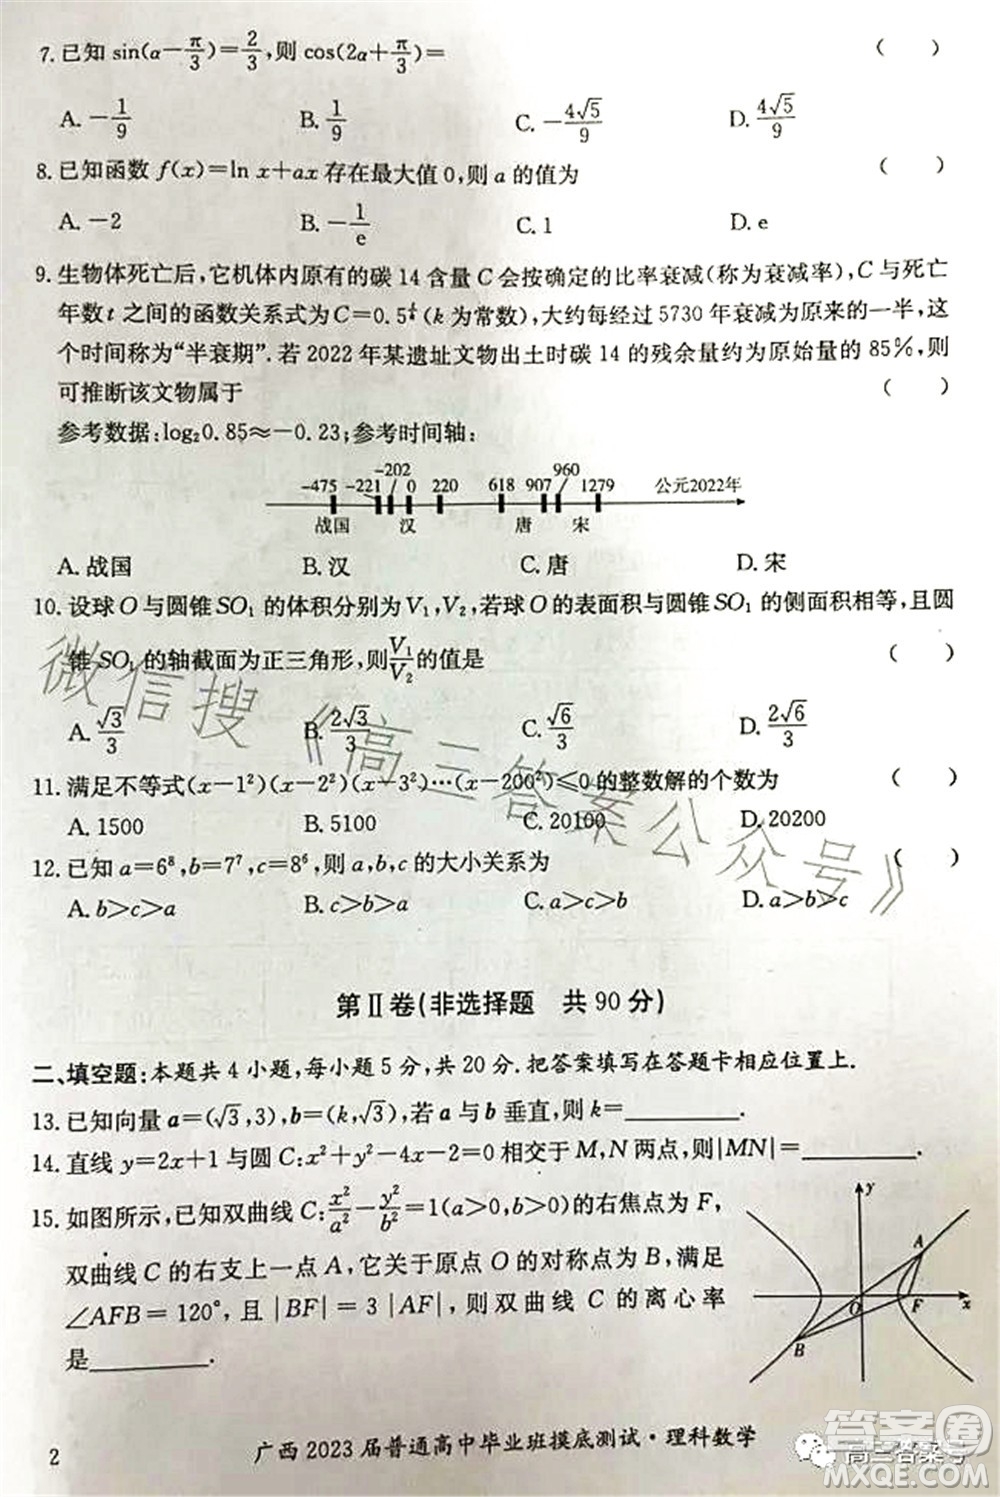 7. 已知 sin(α−π/3)=2/3,则 cos(2α+π/3)= ( )
A. −1/9 B. 1/9 C. −4√5/9 D. 4√5/9
8. 已知函数 f(x)=ln x+ax 存在最大值 0,则 a 的值为 ( )
A. −2 B. −1/e C. 1 D. e
9. 生物体死亡后,它机体内原有的碳 14 含量 C 会按确定的比率衰减(称为衰减率),C 与死亡
年数 t 之间的函数关系式为 C=0.5^(t/k) (k 为常数),大约每经过 5730 年衰减为原来的一半,这
个时间称为“半衰期”.若 2022 年某遗址文物出土时碳 14 的残余量约为原始量的 85%,则
可推断该文物属于 ( )
参考数据:log₂0.85≈−0.23;参考时间轴:
-475 -221 -202 0 220 618 907 960 1279 公元2022年
战国 汉 唐 宋
A. 战国 B. 汉 C. 唐 D. 宋
10. 设球 O 与圆锥 SO₁ 的体积分别为 V₁,V₂,若球 O 的表面积与圆锥 SO₁ 的侧面积相等,且圆
锥 SO₁ 的轴截面为正三角形,则 V₁/V₂ 的值是 ( )
A. √3/3 B. 2√3/3 C. √6/3 D. 2√6/3
11. 满足不等式(x−1²)(x−2²)(x−3²)…(x−200²)≤0 的整数解的个数为 ( )
A. 1500 B. 5100 C. 20100 D. 20200
12. 已知 a=6⁸,b=7⁷,c=8⁶,则 a,b,c 的大小关系为 ( )
A. b>c>a B. c>b>a C. a>c>b D. a>b>c
微信搜《高三答案公众号》
第Ⅱ卷(非选择题 共 90 分)
二、填空题:本题共 4 小题,每小题 5 分,共 20 分.把答案填写在答题卡相应位置上.
13. 已知向量 a=(√3,3),b=(k,√3),若 a 与 b 垂直,则 k=________.
14. 直线 y=2x+1 与圆 C:x²+y²−4x−2=0 相交于 M,N 两点,则|MN|=________.
15. 如图所示,已知双曲线 C:x²/a²−y²/b²=1(a>0,b>0)的右焦点为 F,
双曲线 C 的右支上一点 A,它关于原点 O 的对称点为 B,满足
∠AFB=120°,且|BF|=3|AF|,则双曲线 C 的离心率
是________.
y
A
O
F
x
B
2
广西 2023 届普通高中毕业班摸底测试·理科数学
高三答案号
答案圈
MXQE.COM